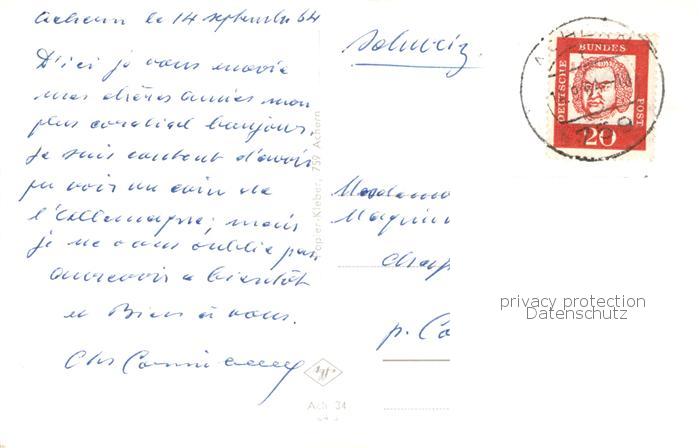 Achern le 14 septembre 64
D'ici je vous envoie
mes chères amies mon
plus cordial bonjour.
Je suis content d'avoir
pu voir un coin de
l'Allemagne; mais
je ne vous oublie pas
aurevoir a bientôt
et Bien à vous.
Chs
Schweiz
Madame
p. Co
Papier-Kleber, 759 Achern
Ach 34
DEUTSCHE BUNDES POST
20
privacy protection
Datenschutz